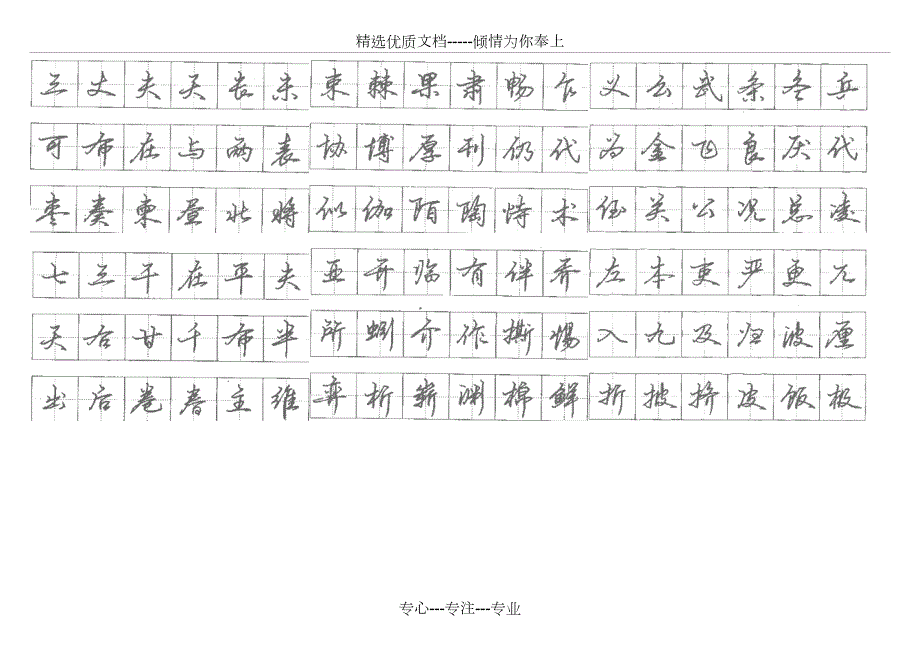 精选优质文档-----倾情为你奉上
三丈夫天长未束棘果肃畅乍义云武条冬兵
可布在与两表协博厚刊仍代为金飞良厌代
枣奏柬昼此将似伽陌陶恃术径关公况总凌
七三干在平夫亚开临有伴乔左本吏严更兀
天右甘千布半所蚓介作撕惕入九及归波厘
出后卷春主维弈析崭渊棉鲜折披挤皮饭极
专心---专注---专业